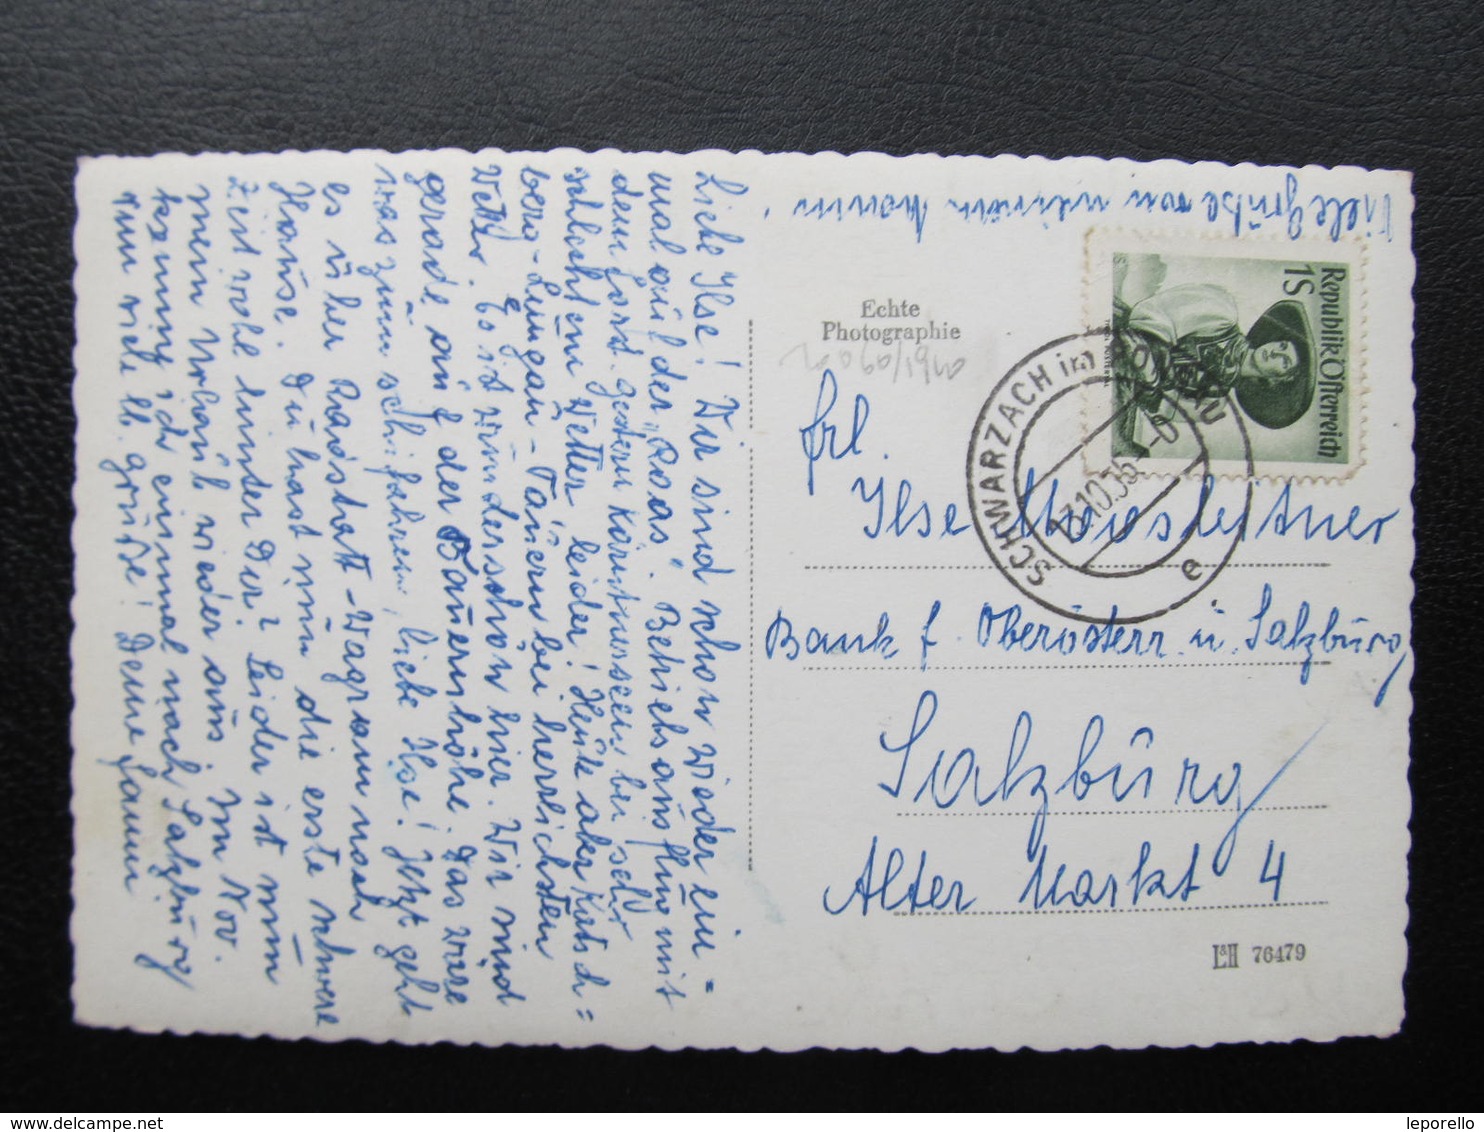 Liebe Ilse! Wir sind schon wieder ein=
mal auf der „Roas". Betriebsausflug mit
dem Forst. Gestern Kärntnerseen bei sehr
schlechtem Wetter leider! Heute aber Katsch=
berg-Lungau-Tauern bei herrlichsten
Wetter. Es ist wunderschön hier. Wir sind
gerade auf der Bauernhöhe. Das wäre
was zum schifahren, liebe Ilse! Jetzt geht
es über Radstatt-Wagram nach
Hause. Du hast nun die erste schwere
Zeit wohl hinter Dir? Leider ist nun
mein Urlaub wieder aus. Im Nov.
komm ich einmal nach Salzburg
nun viele lb. Grüße! Deine
Viele Grüße von meinem
Echte
Photographie
Republik Österreich
1S
SCHWARZACH im PONGAU
e
Frl.
Ilse
Bank f. Oberösterr. u. Salzburg
Salzburg
Alter Markt 4
L&H 76479
leporello
delcampe.net